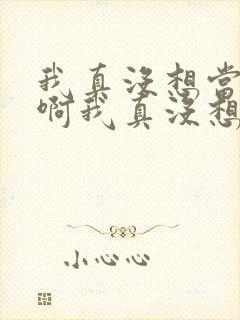 我真没想当
啊我真没想
小心心